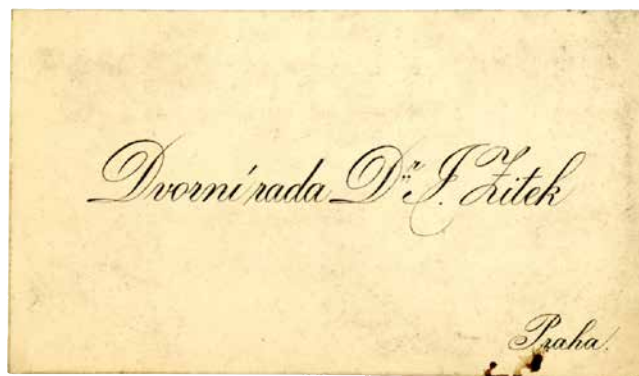 Dvorní rada Dr. J. Zítek
Praha.